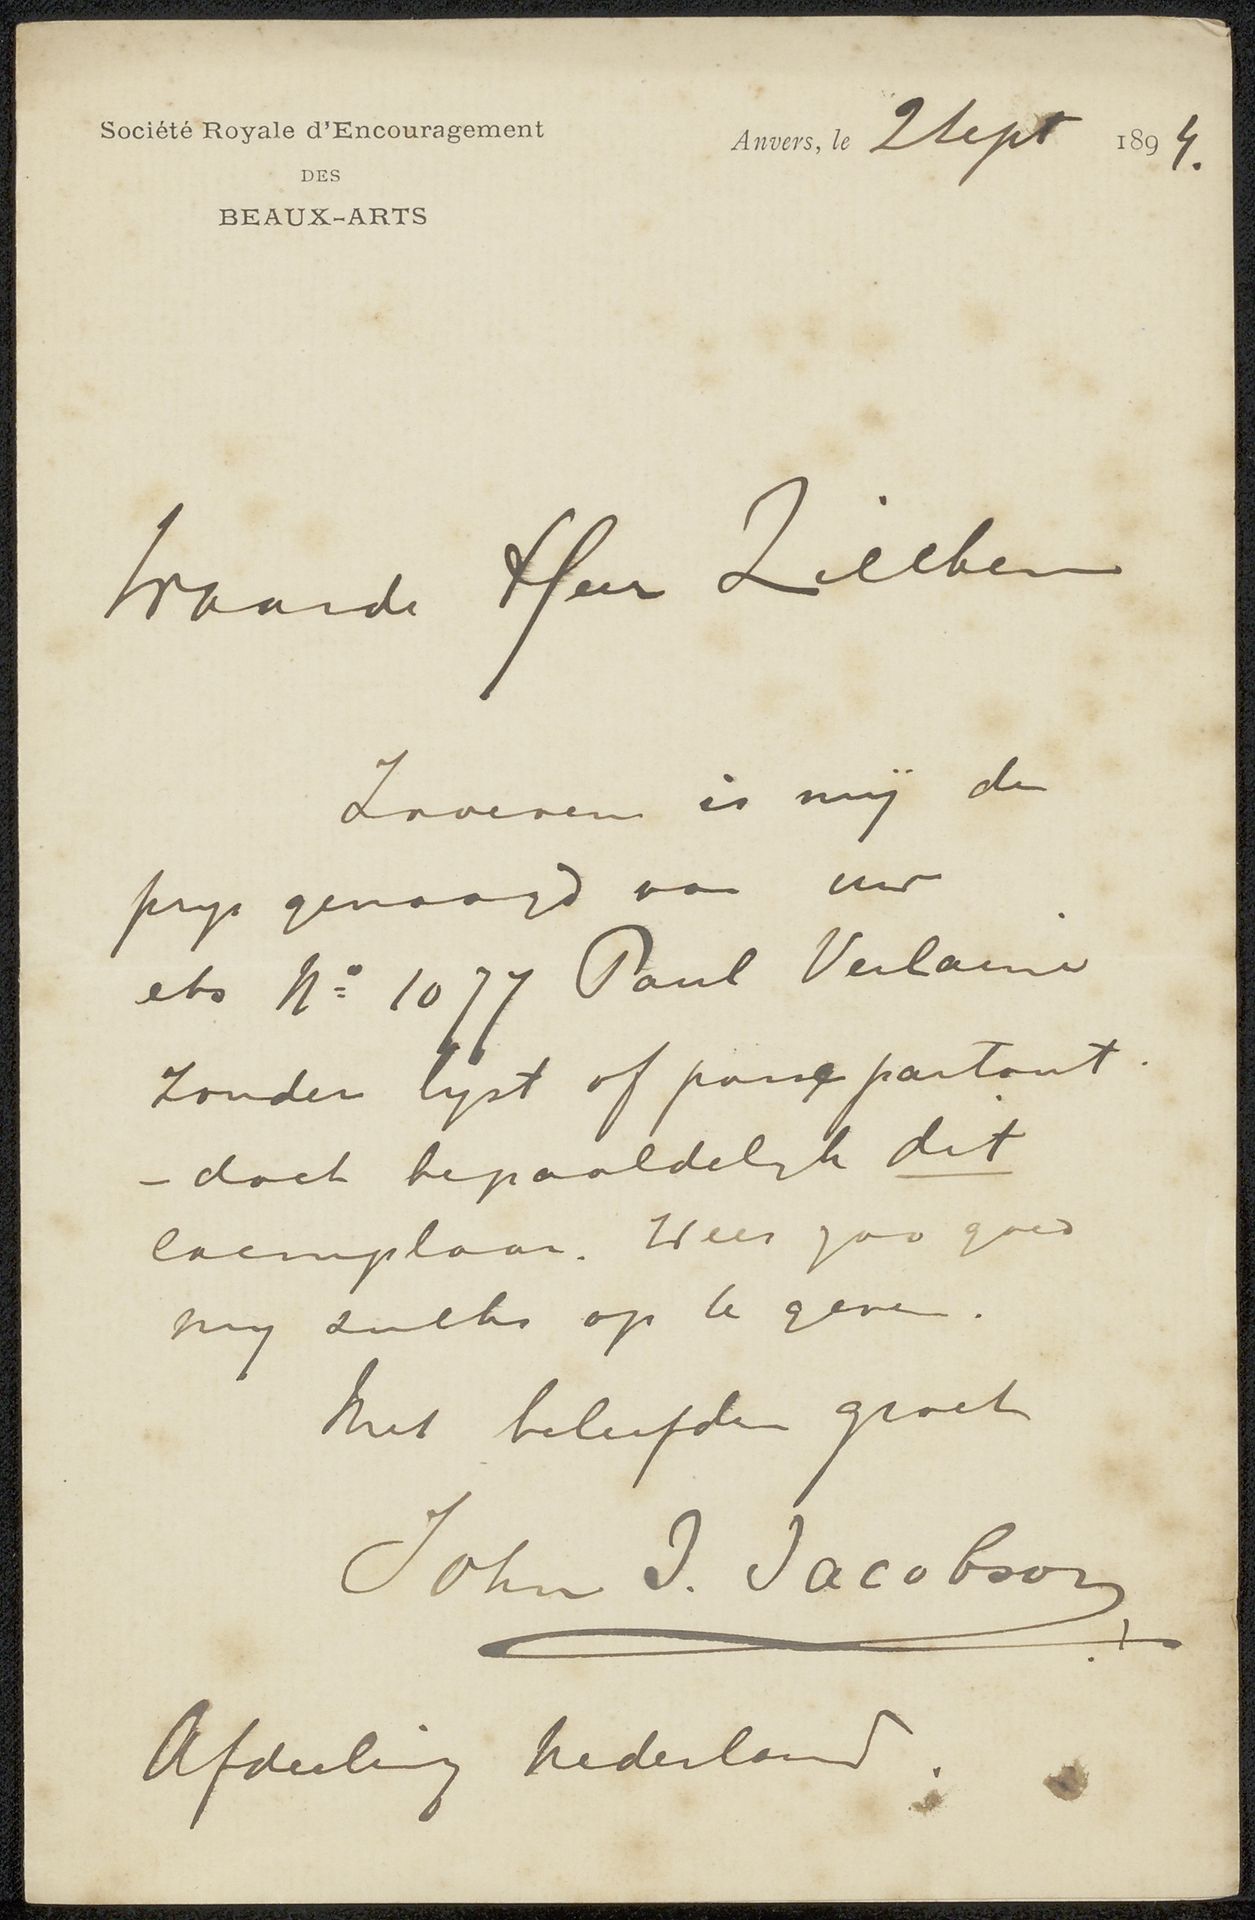 Société Royale d'Encouragement
DES
BEAUX-ARTS
Anvers, le 2 Sept 1894.
Waarde Heer Zilcken
Zooeven is mij de
prijs gevraagd van uw
ets No 1077 Paul Verlaine
zonder lyst of passe partout.
- doch bepaaldelyk dit
exemplaar. Wees zoo goed
my zulks op te geven.
Met beleefden groet
John I. Jacobson
Afdeeling Nederland.